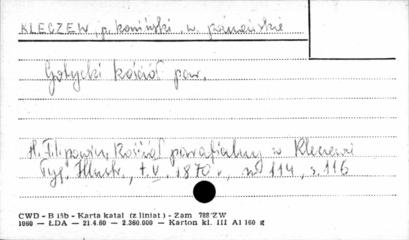 KLECZEW, p. koniński, w. poznańskie
Gotycki kościół par.
H. Filipowicz, Kościół parafialny w Kleczewie
Tyg. Illustr., t. V, 1870 r., nr 114, s. 116
CWD - B 15b - Karta katal. (z liniat.) - Zam 788 ZW
1060 — ŁDA — 21.4.60 — 2.360.000 — Karton kl. III A1 160 g